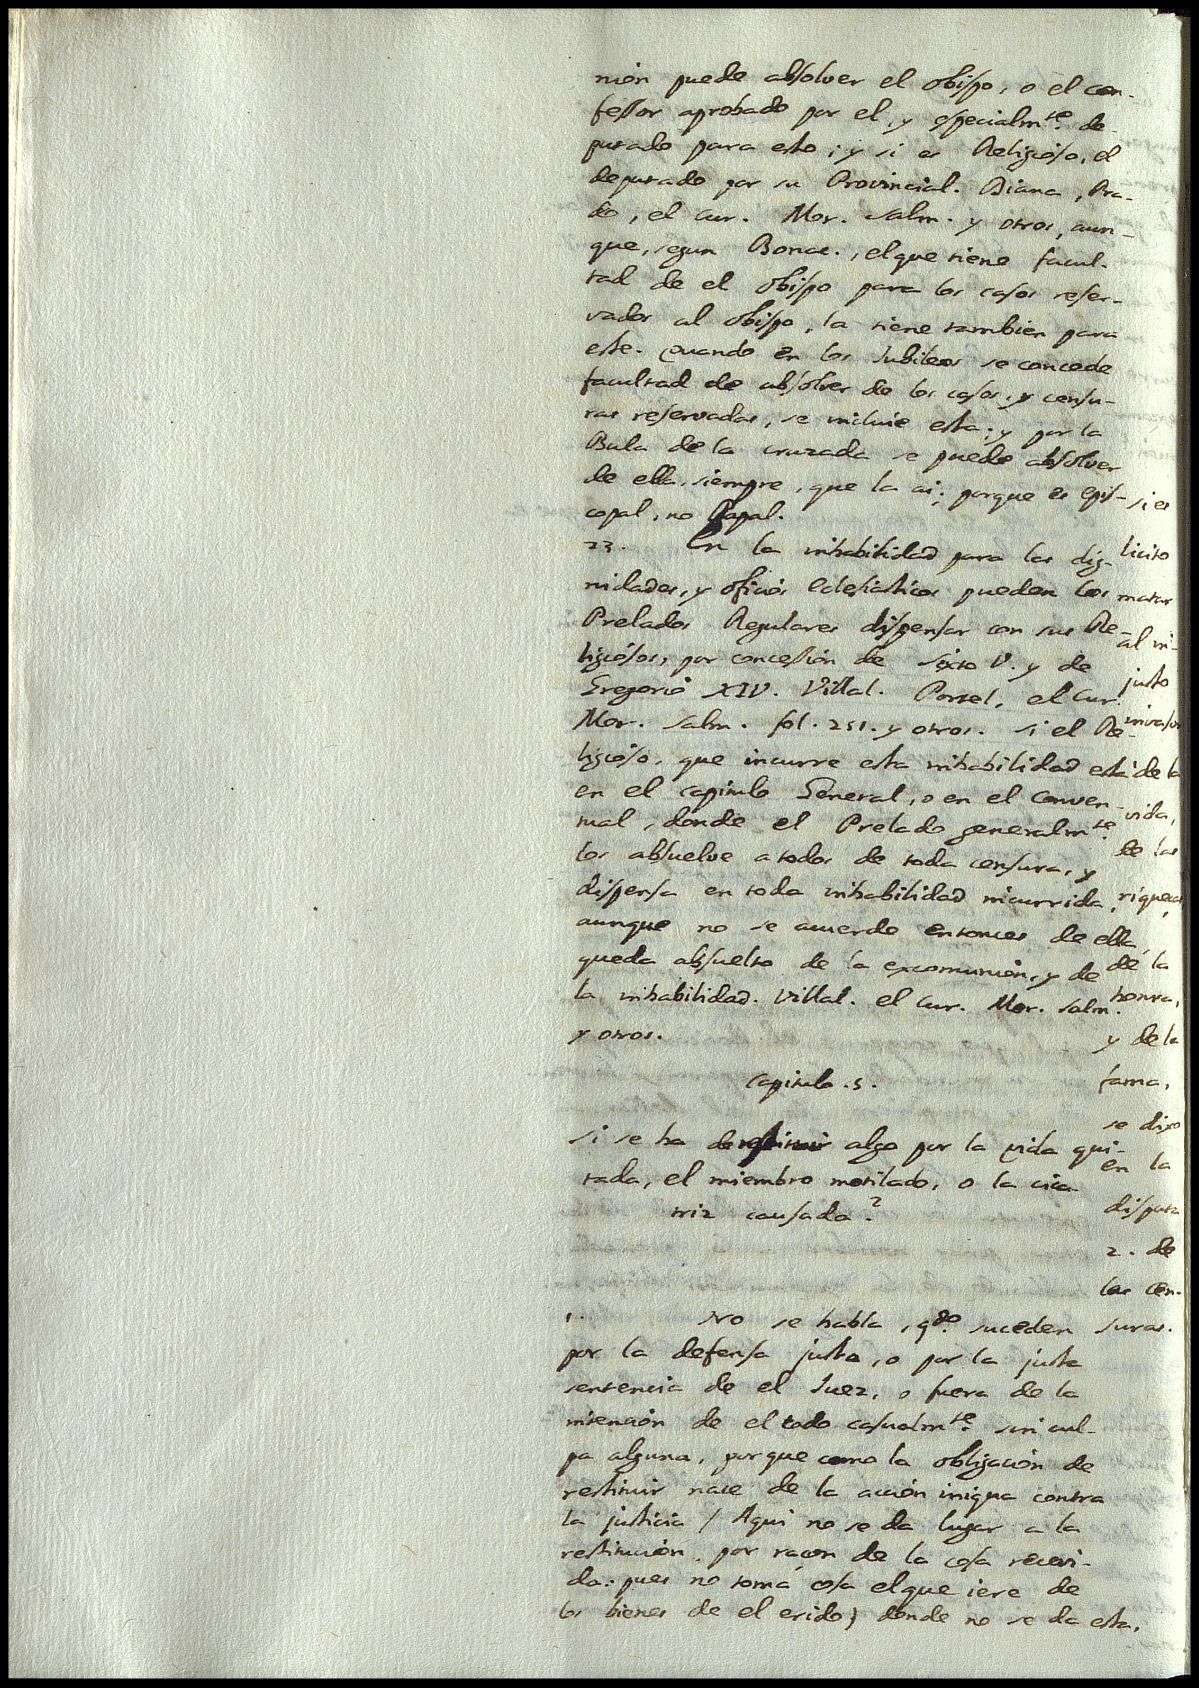 nion puede absolver el obispo, o el con-
fessor aprobado por el, y especialmte. de-
putado para esto; y si es Religioso, el
deputado por su Provincial. Diana, Pra-
do, el Cur. Mor. Salm. y otros, aun-
que, segun Bonac., el que tiene facul-
tad de el obispo para los casos reser-
vados al obispo, la tiene tambien para
este. Quando en los Jubileos se concede
facultad de absolver de los casos, y censu-
ras reservadas, se incluie esta; y por la
Bula de la cruzada se puede absolver
de ella, siempre, que la ai; porque es epis-
copal, no Papal.
23. En la inhabilidad para las dig-
nidades, y oficios eclesiasticos pueden los
Prelados Regulares dispensar con sus Re-
ligiosos, por concession de Sixto V. y de
Gregorio XIV. Villal. Portel, el Cur.
Mor. Salm. fol. 251. y otros. Si el Re-
ligioso, que incurre esta inhabilidad està
en el capitulo General, o en el conven-
tual, donde el Prelado generalmte.
los absuelve a todos de toda censura, y
dispensa en toda inhabilidad incurrida,
aunque no se acuerde entonces de ella,
queda absuelto de la excomunion, y de
la inhabilidad. Villal. el Cur. Mor. Salm.
y otros.
Capitulo. 5.
Si se ha de restituir algo por la vida qui-
tada, el miembro motilado, o la cica-
triz causada?
1. No se habla, qdo. suceden
por la defensa justa, o por la justa
sentencia de el Juez, o fuera de la
intencion de el todo casualmte. sin cul-
pa alguna, porque como la obligacion de
restituir nace de la accion iniqua contra
la justicia / Aqui no se da lugar a la
restitucion por racon de la cosa recevi-
da: pues no toma cosa el que iere de
los bienes de el erido) donde no se da esta,
si es
licito
matar
al in-
justo
invasor
de la
vida,
de las
riquecas,
de la
honra,
y de la
fama,
se dixo
en la
disputa
2. de
las cen-
suras.